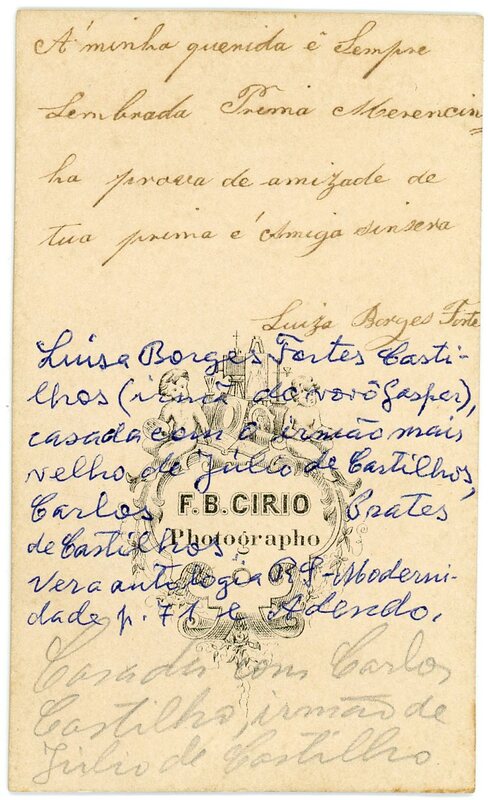 A' minha querida é Sempre
Lembrada Prima Merencin=
ha prova de amizade de
tua prima é Amiga sinsera
Luiza Borges Forte
Luisa Borges Fortes Casti-
lhos (irmã do vovô Gasper),
casada com o irmão mais
velho de Júlio de Castilhos,
Carlos Prates
de Castilhos.
F. B. CIRIO
Photographo
Ver a antologia RS-Moderni-
dade p. 71 e Adendo.
Casada com Carlos
Castilho, irmão de
Júlio de Castilho